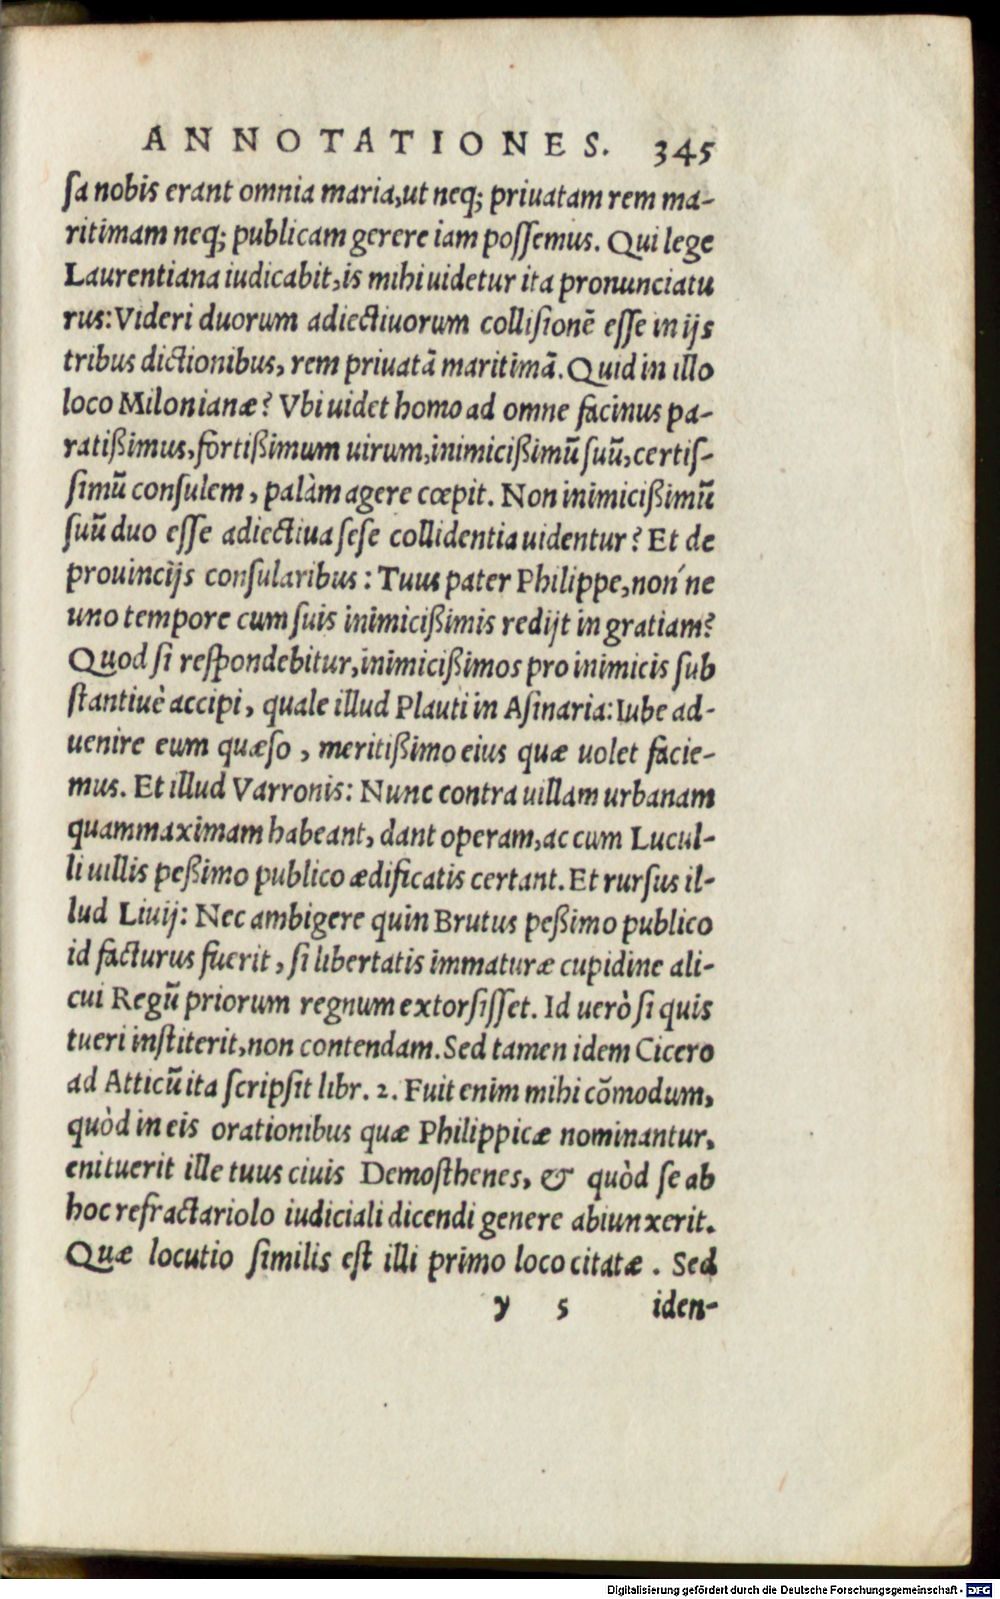 ANNOTATIONES. 345
ſa nobis erant omnia maria,ut neq; priuatam rem ma-
ritimam neq; publicam gerere iam poſſemus. Qui lege
Laurentiana iudicabit,is mihi uidetur ita pronunciatu
rus:Videri duorum adiectiuorum colliſionē eſſe in ijs
tribus dictionibus, rem priuatā maritimā. Quid in illo
loco Milonianæ? Vbi uidet homo ad omne facinus pa-
ratißimus,fortißimum uirum,inimicißimū ſuū,certiſ-
ſimū conſulem, palàm agere cœpit. Non inimicißimū
ſuū duo eſſe adiectiua ſeſe collidentia uidentur? Et de
prouincijs conſularibus: Tuus pater Philippe,non´ne
uno tempore cum ſuis inimicißimis redijt in gratiam?
Quod ſi reſpondebitur,inimicißimos pro inimicis ſub
ſtantiuè accipi, quale illud Plauti in Aſinaria:Iube ad-
uenire eum quæſo, meritißimo eius quæ uolet facie-
mus. Et illud Varronis: Nunc contra uillam urbanam
quammaximam habeant, dant operam,ac cum Lucul-
li uillis peßimo publico ædificatis certant. Et rurſus il-
lud Liuij: Nec ambigere quin Brutus peßimo publico
id facturus fuerit, ſi libertatis immaturæ cupidine ali-
cui Regū priorum regnum extorſiſſet. Id uerò ſi quis
tueri inſtiterit,non contendam. Sed tamen idem Cicero
ad Atticū ita ſcripſit libr. 2. Fuit enim mihi cōmodum,
quòd in eis orationibus quæ Philippicæ nominantur,
enituerit ille tuus ciuis Demoſthenes, & quòd ſe ab
hoc refractariolo iudiciali dicendi genere abiunxerit.
Quæ locutio ſimilis eſt illi primo loco citatæ. Sed
y 5 iden-
Digitalisierung gefördert durch die Deutsche Forschungsgemeinschaft - DFG